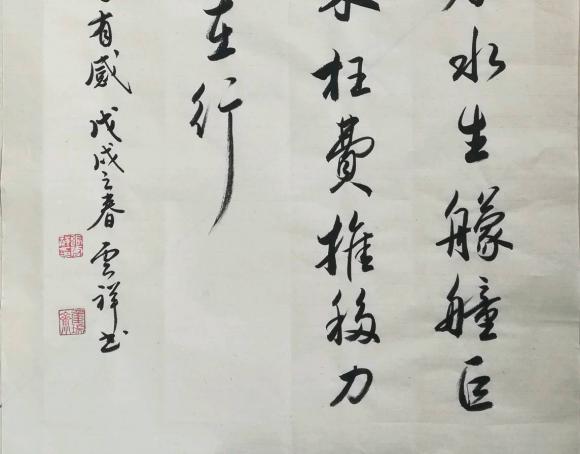 水生艨艟巨
枉費推移力
在行
有感 戊戌之春 雲祥书